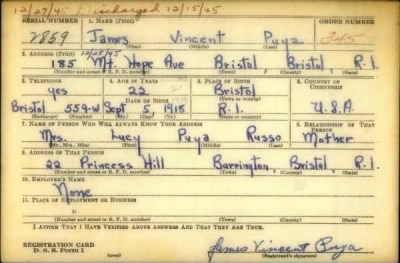 12/27/45 Discharged 12/15/45
SERIAL NUMBER 1. NAME (Print) ORDER NUMBER
2859 James Vincent Puza 345
(First) (Middle) (Last)
2. ADDRESS (Print) 12/28/45
185 Mt. Hope Ave Bristol Bristol R.I.
(Number and street or R. F. D. number) (Town) (County) (State)
3. TELEPHONE 4. AGE IN YEARS 5. PLACE OF BIRTH 6. COUNTRY OF CITIZENSHIP
yes 22 Bristol
DATE OF BIRTH (Town or county)
Bristol 559-W Sept 5, 1918 R.I. U.S.A.
(Exchange) (Number) (Mo.) (Day) (Yr.) (State or country)
7. NAME OF PERSON WHO WILL ALWAYS KNOW YOUR ADDRESS 8. RELATIONSHIP OF THAT PERSON
Mrs. Lucy Puza Russo Mother
(Mr., Mrs., Miss) (First) (Middle) (Last)
9. ADDRESS OF THAT PERSON
22 Princess Hill Barrington, Bristol, R.I.
(Number and street or R. F. D. number) (Town) (County) (State)
10. EMPLOYER'S NAME
None
11. PLACE OF EMPLOYMENT OR BUSINESS
(Number and street or R. F. D. number) (Town) (County) (State)
I AFFIRM THAT I HAVE VERIFIED ABOVE ANSWERS AND THAT THEY ARE TRUE.
REGISTRATION CARD James Vincent Puza
D. S. S. FORM 1 (Registrant's signature)